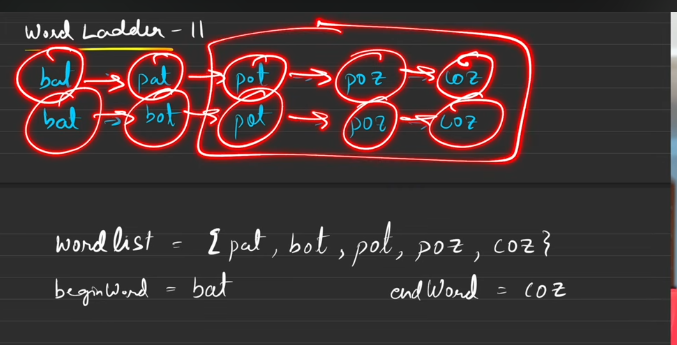 Word Ladder - 11
bat → pat → pot → poz → coz
bat → bot → pot → poz → coz
wordlist = {pat, bot, pot, poz, coz}
beginWord = bat endWord = coz